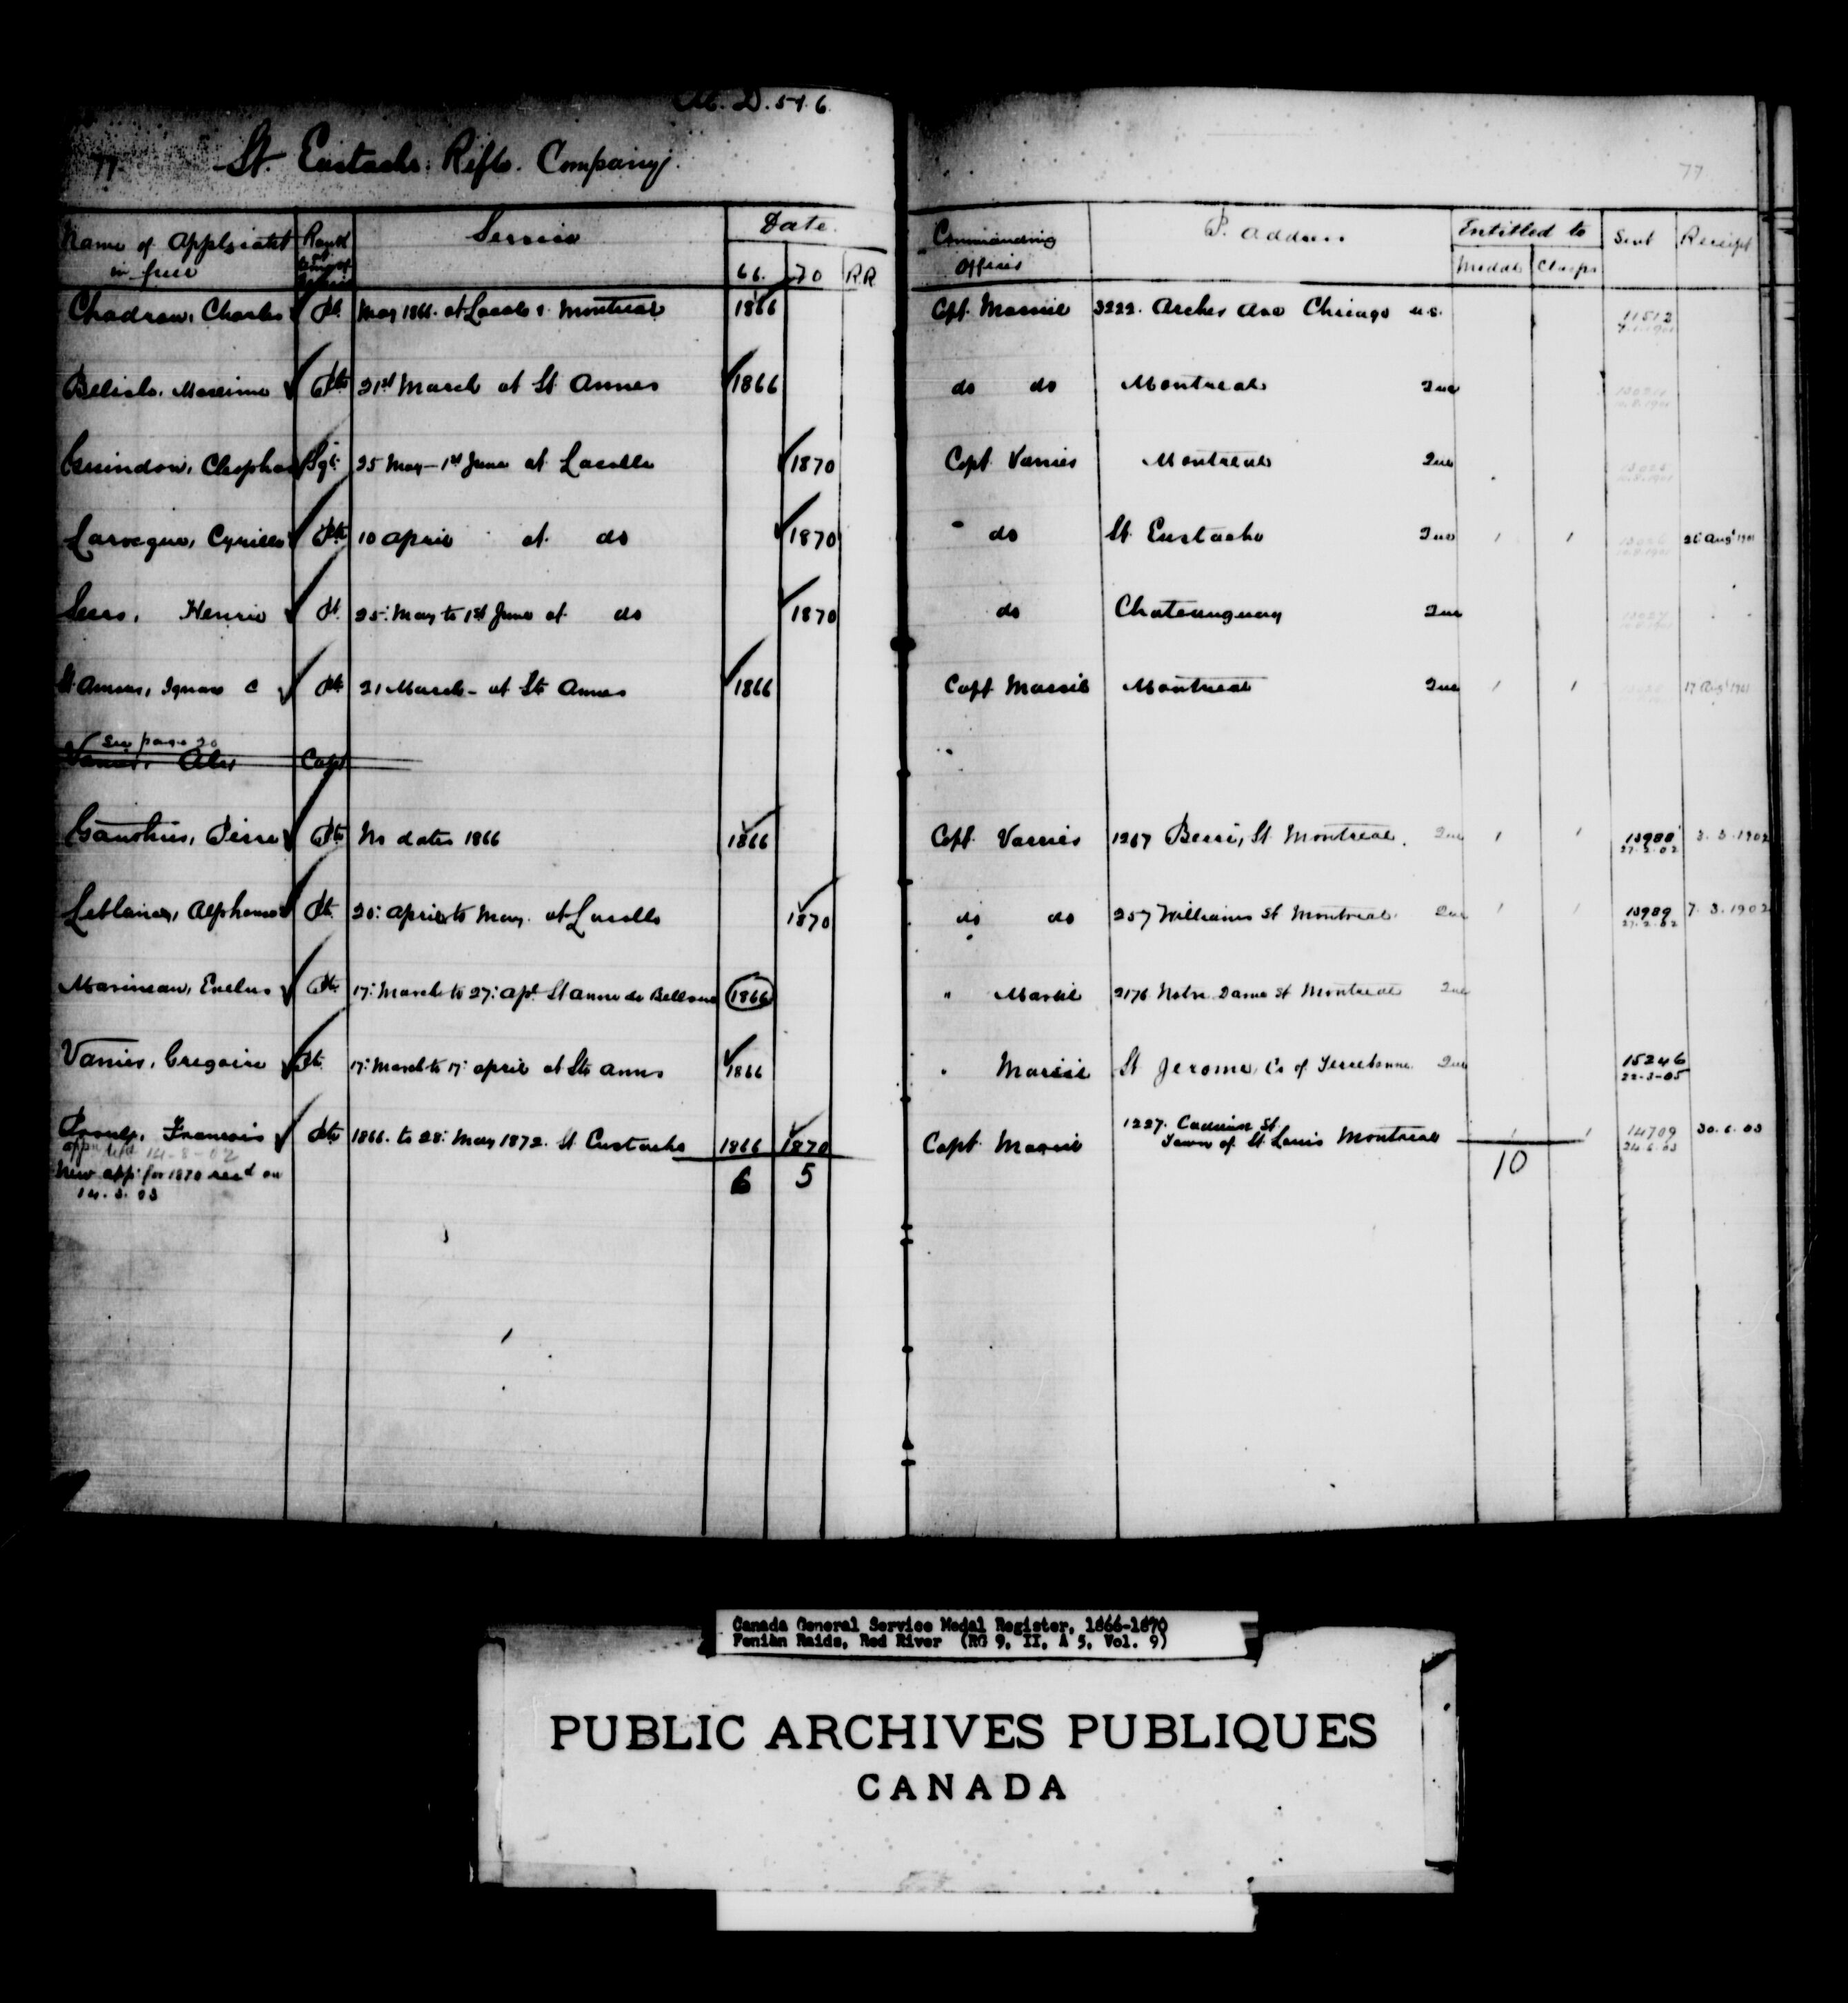 M. D. 5 & 6.
77. St. Eustache Rifle Company. 77
Name of Applicant in full Rank Service Date. 66. 70 RR Commanding Officer P. Address Entitled to Medal Clasps Sent Receipt
Chadrow, Charles Pt May 1866. at Lacolle & Montreal 1866 Cpt. Marsil 3222. Archer Ave Chicago U.S. 11512
Belisle, Maxime Pte 21st March at St Annes 1866 do do Montreal Que
Guindon, Cleophas Sgt. 25 May – 1st June at Lacolle 1870 Capt Varries Montreal Que
Larocque, Cyrille Pte 10 April at do 1870 do St. Eustache Que 1 1 26 Augt 1901
Sers, Henrie Pt. 25: May to 1st June at do 1870 do Chateauguay Que
St. Amour, Ignace C Pte 21 March - at Ste Annes 1866 Capt Marsil Montreal Que 1 1 17 Augt 1901
See page 20
Alex Capt
Gauthier, Pierre Pte No dates 1866 1866 Capt. Varries 1267 Berri, St. Montreal. Que 1 1 13988 27.2.02 3.3.1902
Leblanc, Alphonse Pt. 20: April to May. at Lacolle 1870 do do 257 Williams St Montreal. Que 1 1 13989 27.2.02 7.3.1902
Marineau, Pte 17: March to 27: Apl. St Anne de Bellevue 1866 " Marsil 2176 Notre Dame St Montreal Que
Varries, Gregoire Pt. 17: March to 17: April at Ste Annes 1866 " Marsil St Jerome, Co of Terrebonne Que 15246 22-3-05
Proulx, Francois Pte 1866. to 28: May 1872. St. Eustache 1866 1870 Capt. Marsil 1227. St.
Town of St. Louis Montreal 1 1 14709 24.6.03 30.6.03
14-8-02
New app: for 1870 recd on
14.3.03
6 5 10
Canada General Service Medal Register, 1866-1870
Fenian Raids, Red River (RG 9, II, A 5, Vol. 9)
PUBLIC ARCHIVES PUBLIQUES
CANADA